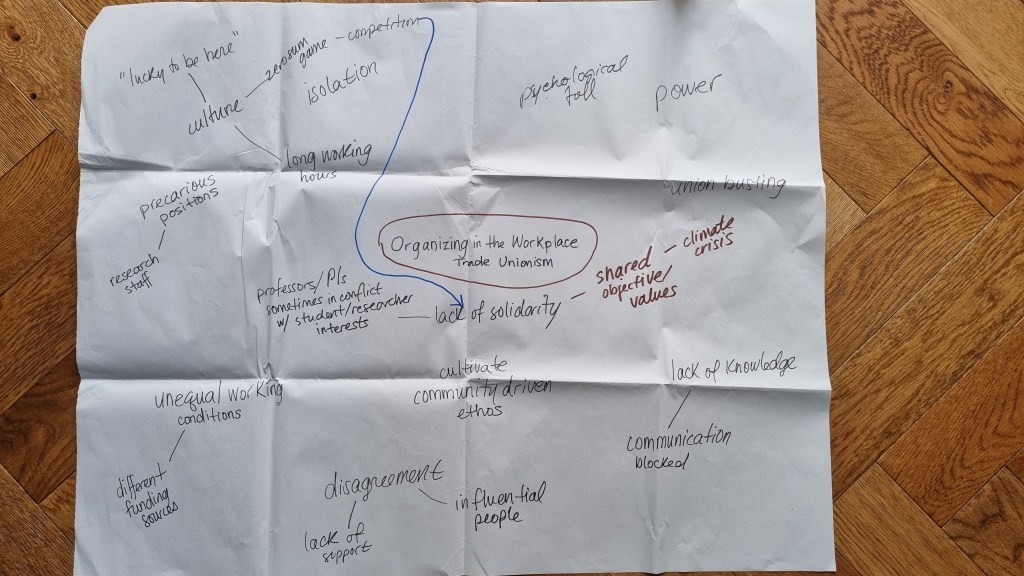 "lucky to be here"
culture
zerosum
game – competition
isolation
long working
hours
psychological
toll
power
union busting
precarious
positions
research
staff
Organizing in the Workplace
Trade Unionism
professors/PIs
sometimes in conflict
w/ student/researcher
interests
lack of solidarity
shared
objective/
values
climate
crisis
cultivate
community driven
ethos
lack of knowledge
communication
blocked
unequal working
conditions
different
funding
sources
disagreement
lack of
support
influential
people